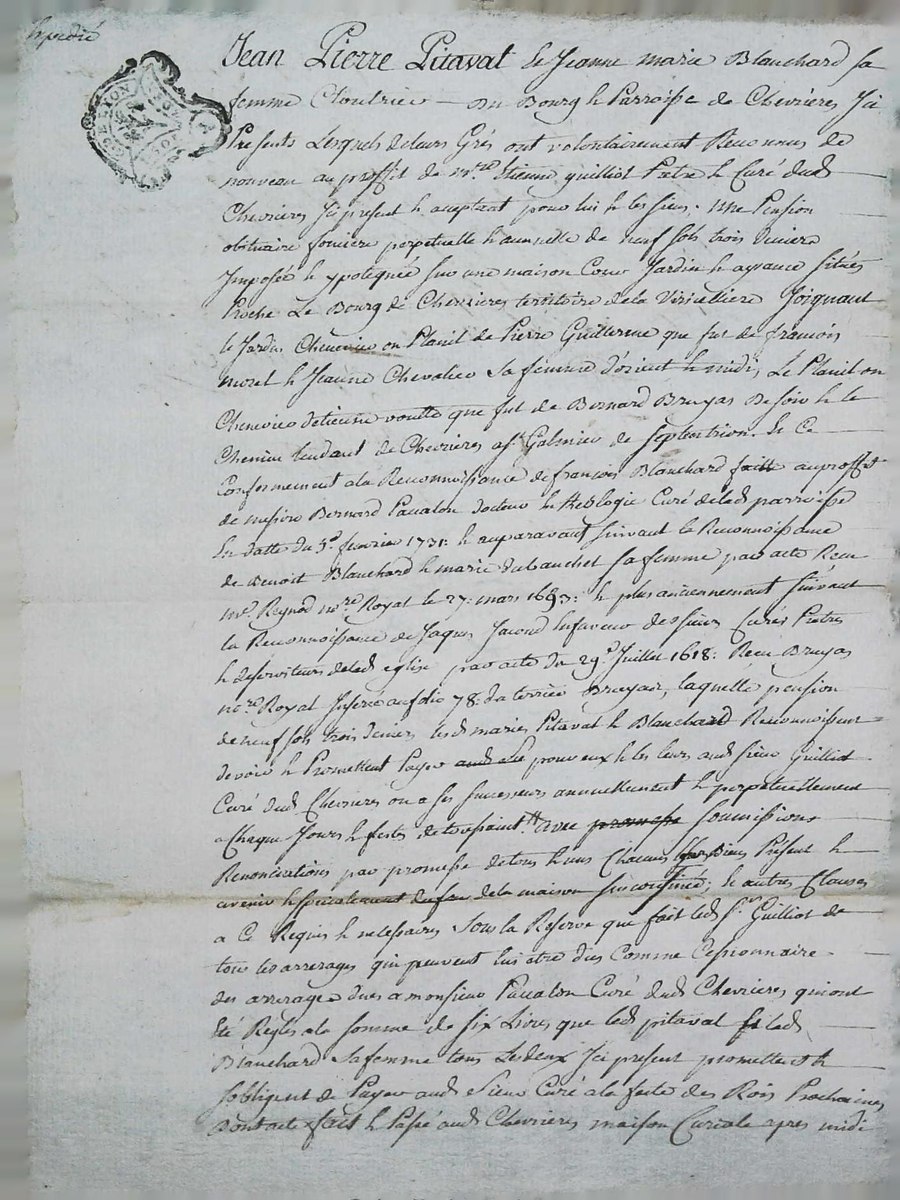 Expedié
Jean Pierre Pitavat & Jeanne marie Blanchard sa
femme Cloutrier du Bourg & Parroisse de Chevrieres Ici
Presents Lesquels de leurs Grés ont volontairement Reconnus de
nouveau au proffit de mre Etienne guilliot Pretre & Curé dud
Chevrieres Ici present & aceptant pour lui & les siens, une Pension
obituaire fonciere perpetuelle & annuelle de neuf sols trois deniers
Imposée & ypotequée sur une maison Cour Jardin & aysance situés
Proche Le Bourg de Chevrieres territoire dela Viricelliere Joignant
le Jardin Cheneviee ou Planit de Pierre Guillerme que fut de francois
moret & Jeanne Chevalier sa femme d'orient & midi, Le Planit ou
Chenevier d'etienne voutte que fut de Bernard Bruyas de soir & le
Chemin tendant de Chevrieres a st Galmier de septentrion. Et Ce
Conformement ala Reconnoissance de francois Blanchard faitte auproffit
de messire Bernard Pacalon docteur en theologie Curé delad parroisse
En datte du 5e fevrier 1731: & auparavant suivant la Reconnoissance
de benoit Blanchard & marie dubanchet sa femme par acte Recu
me Reynod nore Royal le 27: mars 1693: & plus anciennement suivant
la Reconnoissance de Jaques Jacond en faveur des sieurs Curés Pretres
& deserviteurs delad eglise par acte du 29e Juillet 1618: Recu Bruyas
nore Royal Inseré au folio 78: du terrier Bruyas, laquelle pension
de neuf sols trois deniers lesd mariés Pitavat & Blanchard Reconnoissent
devoir & Promettent Payer pour eux & les leurs aud sieur Guilliot
Curé dud Chevrieres ou a ses successeurs annuellement & perpetuellement
a Chaque Jours & festes de toussaint avec promesse soumissions
Renonciations par promesse de tous & uns Chacuns Biens Present &
avenir & specialement de la maison sus confinée, & autres Clauses
a Ce Requis & necessaires sous la Reserve que fait led sr Guilliot de
tous les arrerages qui peuvent lui etre dus Comme Cessionnaire
des arrerages dues a monsieur Pacalon Curé dud Chevrieres qui ont
Eté Reglés ala somme de six Livres que led pitavat & lad
Blanchard sa femme tous Les deux Ici present promettent &
sobligent de Payer aud sieur Curé ala feste des Rois Prochaines
dont acte fait & Passé aud Chevrieres maison Curiale apres midi